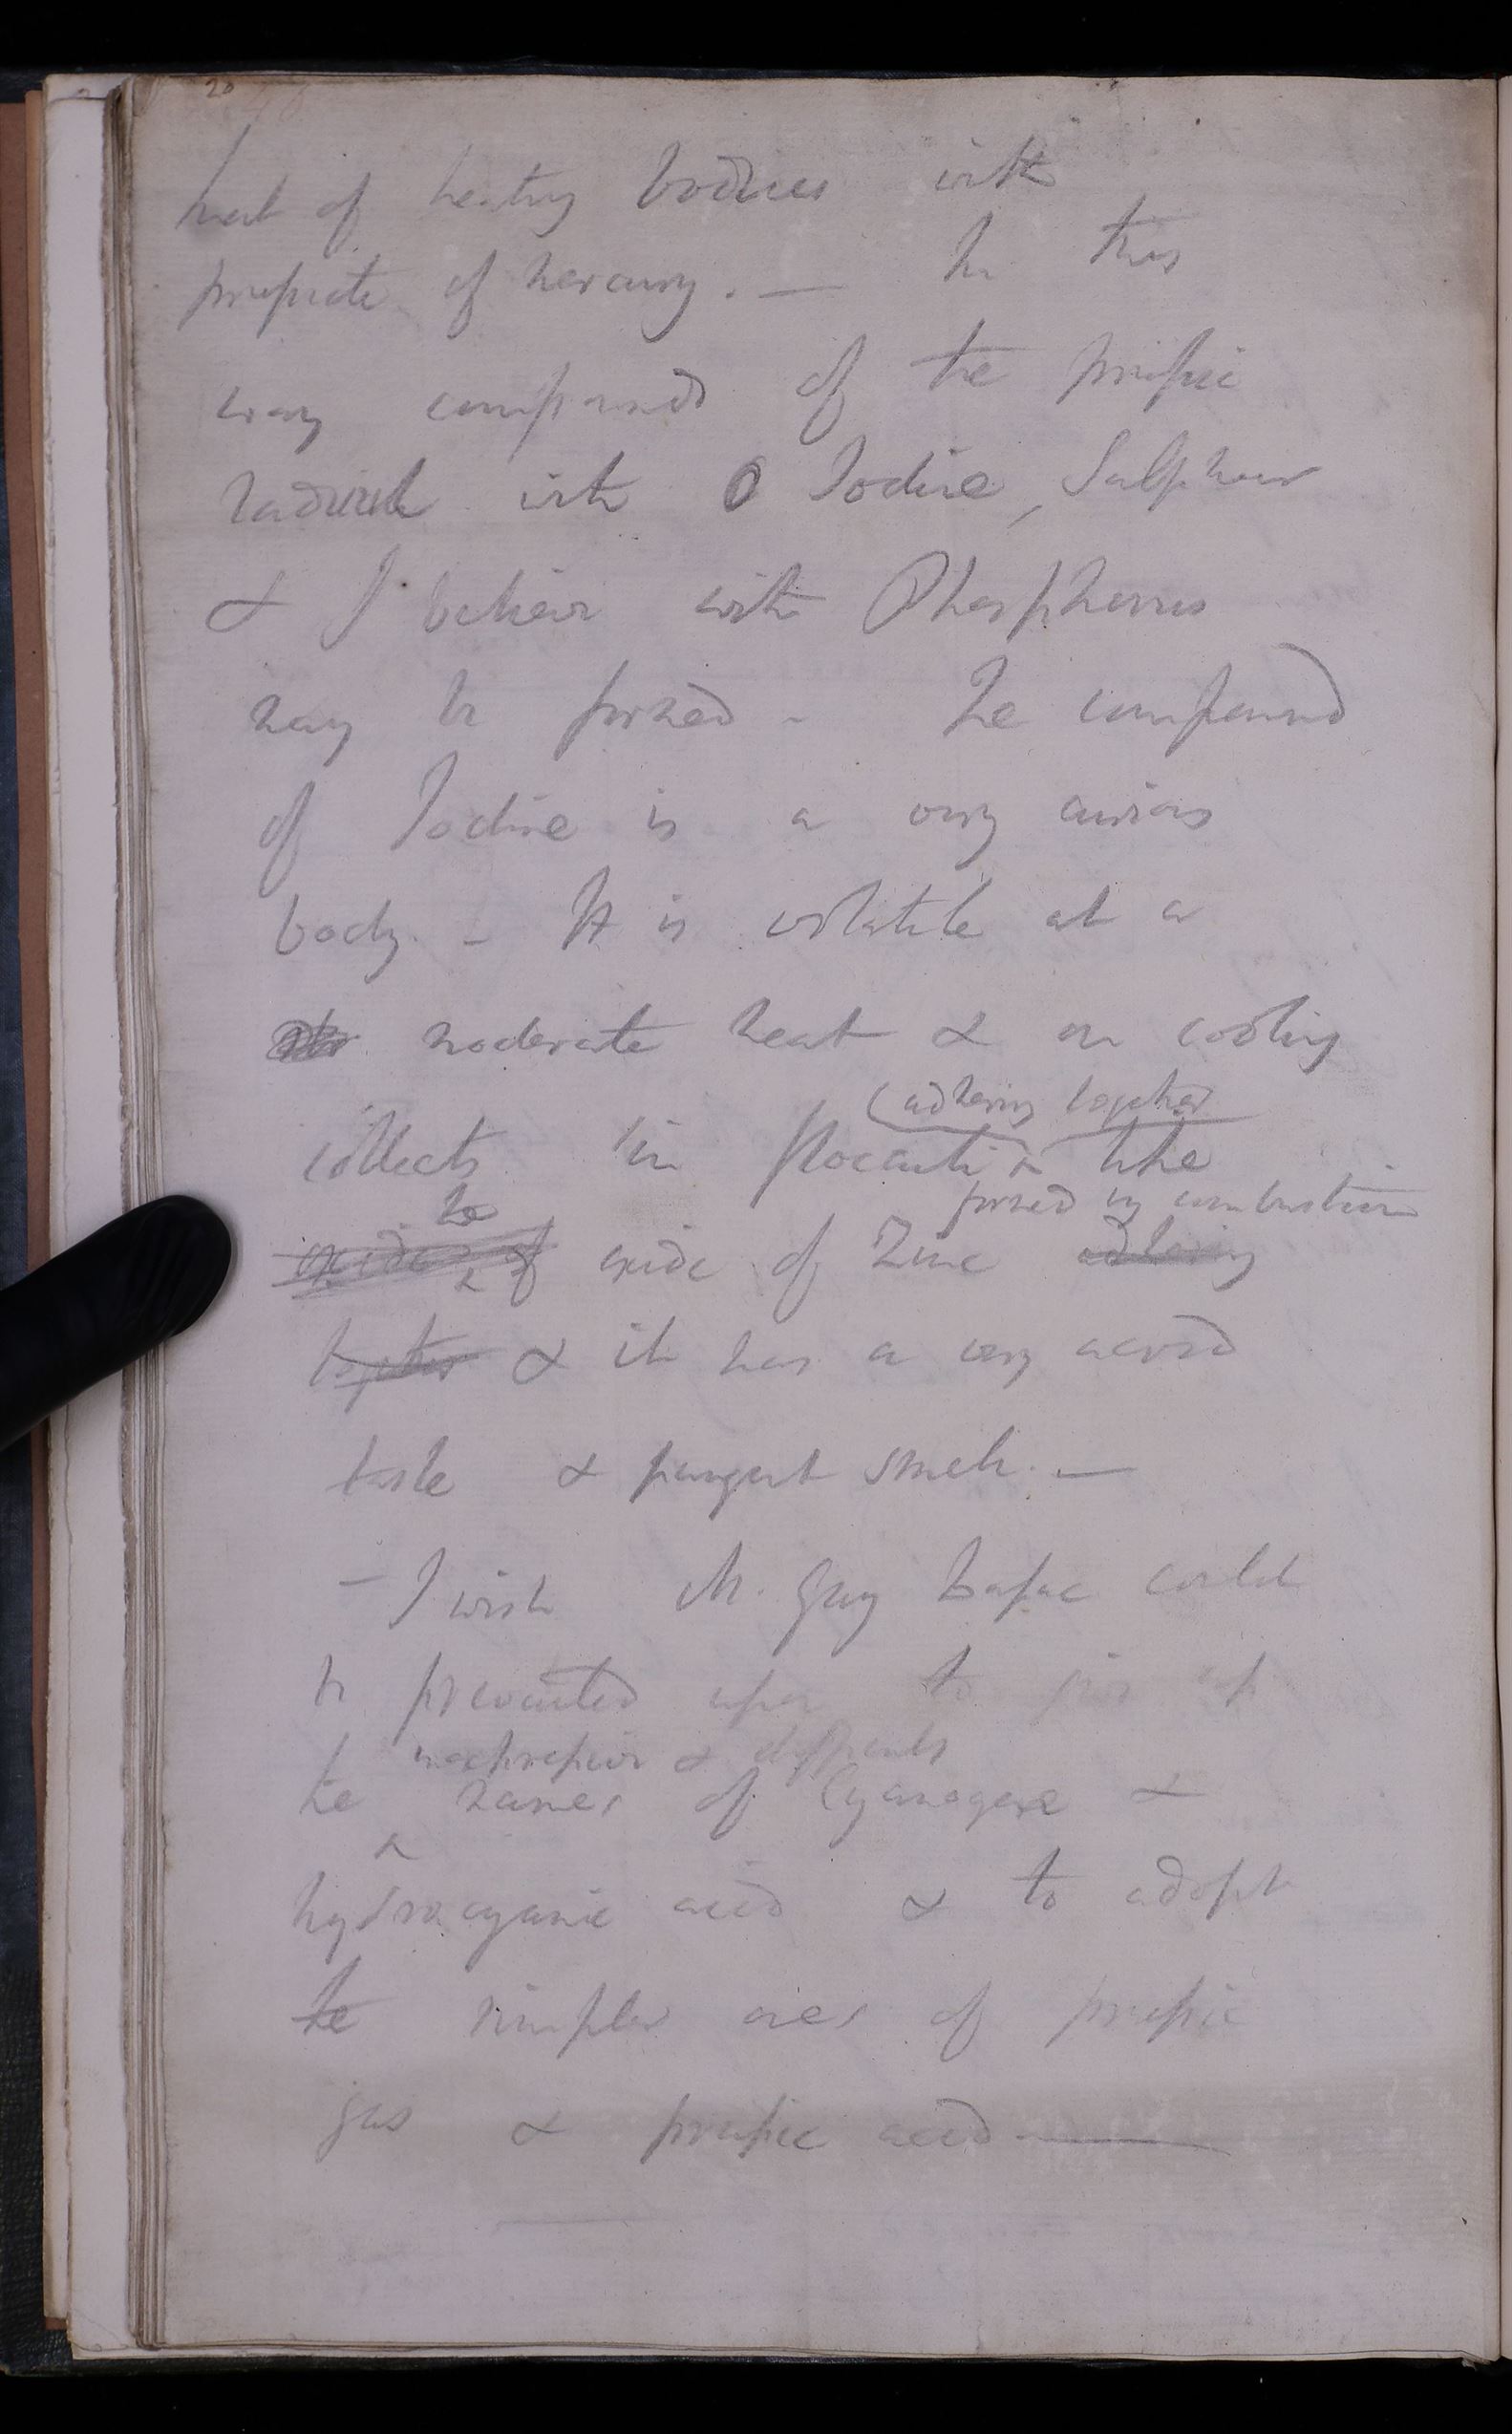 20
that of heating bodies with
prussiate of Mercury. — In this
way compounds of the prussic
radicle with Iodine, Sulphur
& I believe with Phosphorus
may be formed - The compound
of Iodine is a very curious
body. - It is volatile at a
moderate heat & on cooling
(adhering together)
collects in flocculi like
formed in combustion
the
oxide of oxide of Zinc adhering
together & it has a very acrid
taste & pungent smell. —
- I wish M. Gay Lussac could
be prevailed upon to give up
inexpressive &
the names of Cyanogene &
hydrocyanic acid & to adopt
the simpler ones of prussic
gas & prussic acid —